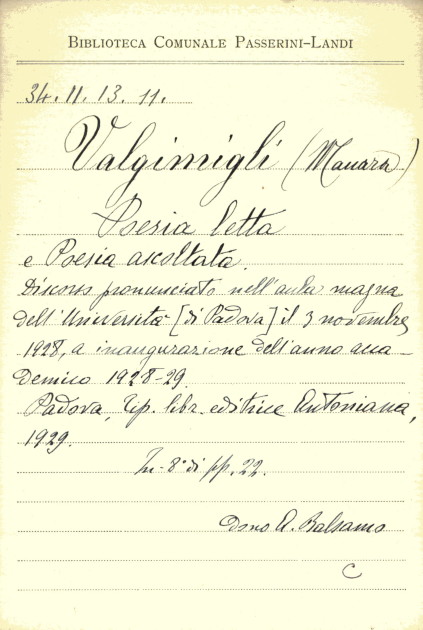 BIBLIOTECA COMUNALE PASSERINI-LANDI
34. II. 13. 11.
Valgimigli (Manara)
Poesia letta
e Poesia ascoltata.
Discorso pronunciato nell'aula magna
dell'Università [di Padova] il 3 novembre
1928, a inaugurazione dell'anno acca-
demico 1928-29.
Padova, Tip. libr. editrice Antoniana,
1929.
In-8° di pp. 22.
dono A. Balsamo
C